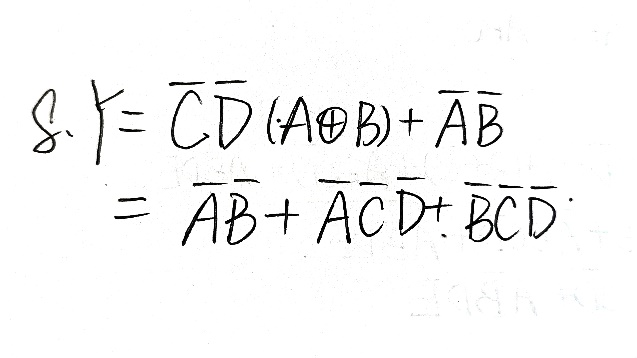 8. Y = C̅ D̅ (A⊕B) + A̅ B̅
= A̅ B̅ + A̅ C̅ D̅ + B̅ C̅ D̅